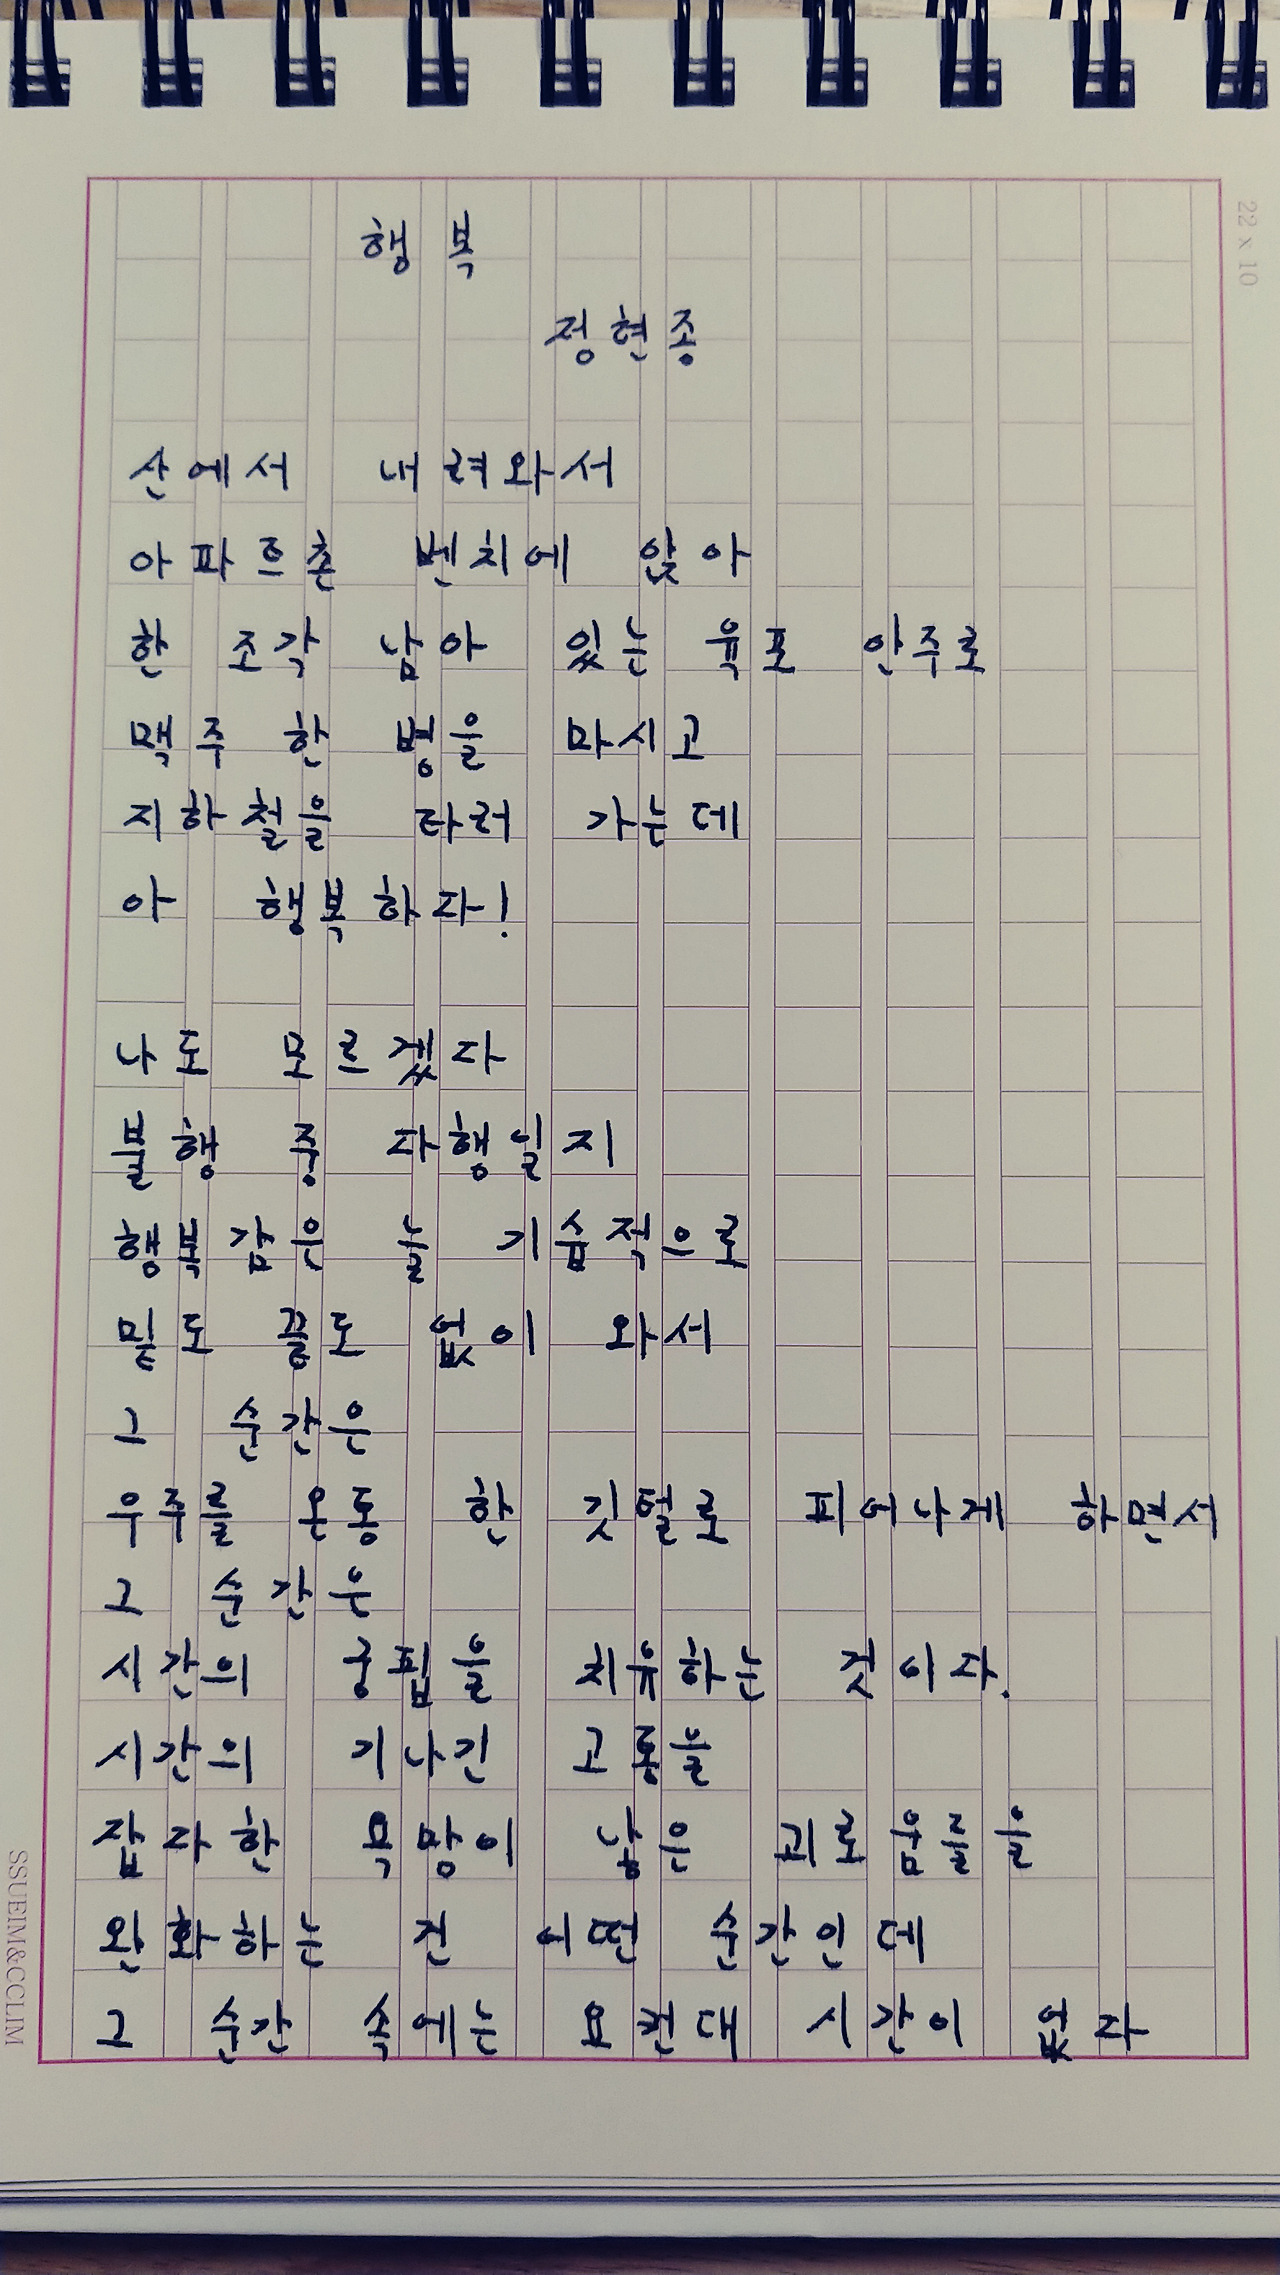 22 x 10
행복
정현종
산에서 내려와서
아파트촌 벤치에 앉아
한 조각 남아 있는 육포 안주로
맥주 한 병을 마시고
지하철을 타러 가는데
아 행복하다!
나도 모르겠다
불행 중 다행일지
행복감은 늘 기습적으로
밑도 끝도 없이 와서
그 순간은
우주를 온통 한 깃털로 피어나게 하면서
그 순간은
시간의 궁핍을 치유하는 것이다.
시간의 기나긴 고통을
잡다한 욕망이 낳은 괴로움들을
완화하는 건 어떤 순간인데
그 순간 속에는 요컨대 시간이 없다
SSUEIM&CCLIM